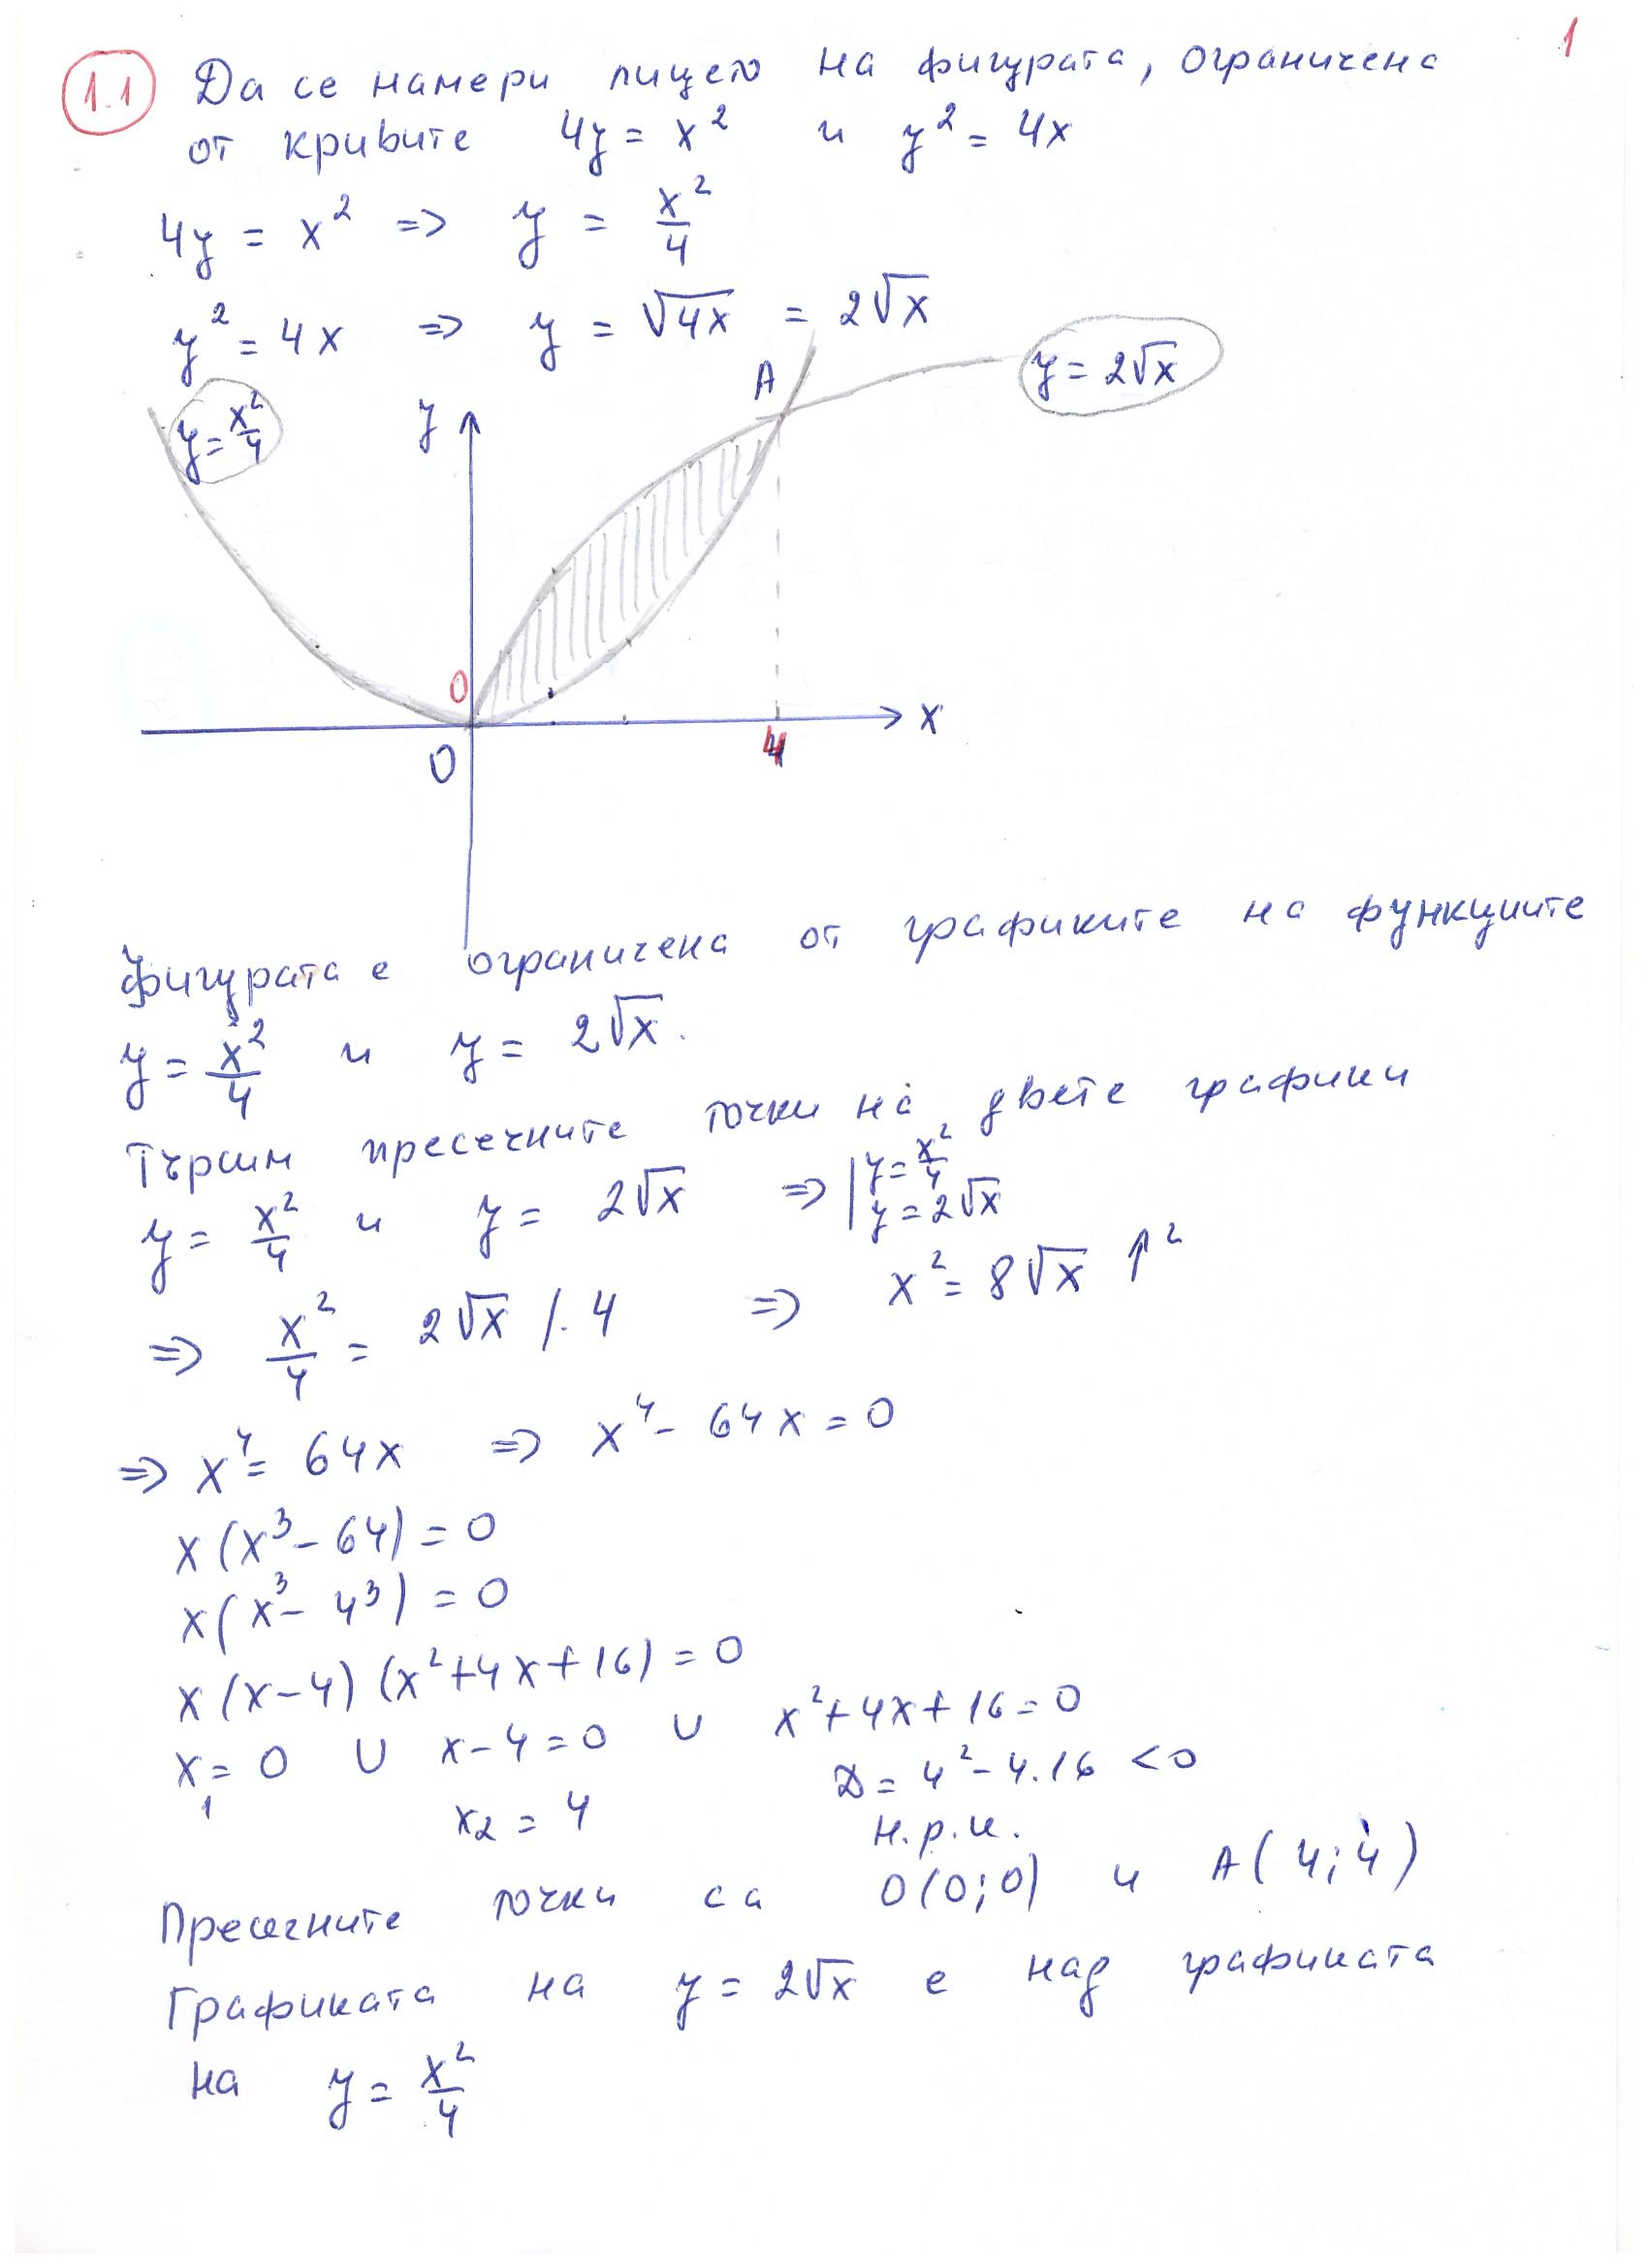 1
1.1 Да се намери лицето на фигурата, ограничена
от кривите 4y = x² и y² = 4x
4y = x² => y = x²/4
y² = 4x => y = √4x = 2√x
A
y = 2√x
y = x²/4
y
0
x
0
4
фигурата е ограничена от графиките на функциите
y = x²/4 и y = 2√x.
Търсим пресечните точки на двете графики
y = x²/4 и y = 2√x => | y = x²/4
y = 2√x
=> x²/4 = 2√x /. 4 => x² = 8√x ↑²
=> x⁴ = 64x => x⁴ - 64x = 0
x(x³ - 64) = 0
x(x³ - 4³) = 0
x(x-4)(x²+4x+16) = 0
x₁ = 0 ∪ x-4=0 ∪ x²+4x+16=0
x₂ = 4 D = 4² - 4.16 < 0
н.р.к.
Пресечните точки са O(0;0) и A(4;4)
Графиката на y = 2√x е над графиката
на y = x²/4